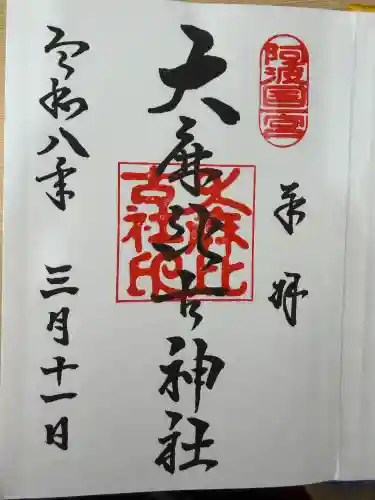 阿波国一宮
奉拝
大麻比古神社
大麻比
古社印
令和八年 三月十一日